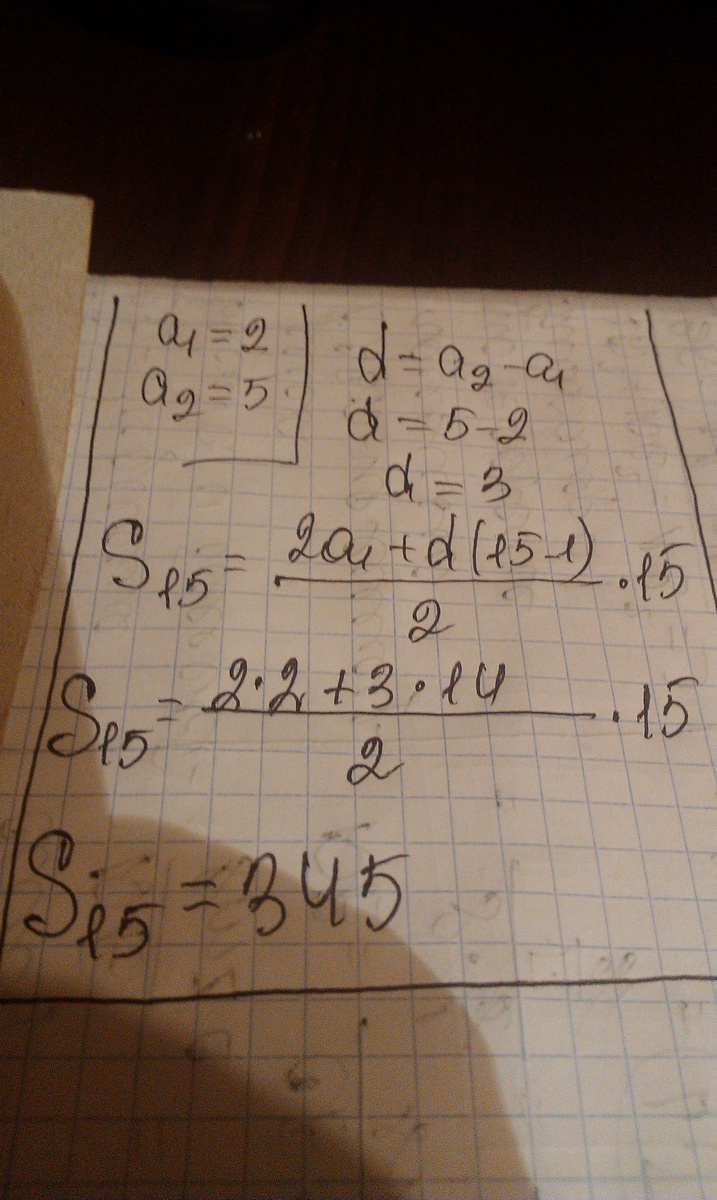 a₁ = 2
a₂ = 5
d = a₂ - a₁
d = 5 - 2
d = 3
S₁₅ = (2a₁ + d(15-1))/2 · 15
S₁₅ = (2·2 + 3·14)/2 · 15
S₁₅ = 345